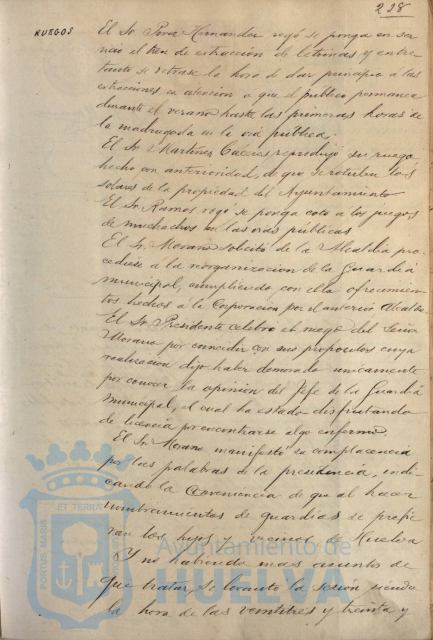 228
RUEGOS
El Sr. Pérez Hernández rogó se ponga en ser-
vicio el tren de extracción de letrinas y entre-
tanto se retrase la hora de dar principio a las
extracciones en atención a que el público permanece
durante el verano hasta las primeras horas de
la madrugada en la vía pública.
El Sr. Martínez reprodujo su ruego
hecho con anterioridad, de que se rotulen los
solares de la propiedad del Ayuntamiento
El Sr. Ramos rogó se ponga coto a los juegos
de muchachos en las vías públicas
El Sr. Morano solicitó de la Alcaldía pro-
cediese a la reorganización de la Guardia
municipal, cumpliendo con ella ofrecimien-
tos hechos a la Corporación por el anterior Alcalde.
El Sr. Presidente celebró el ruego del Señor
Morano por coincidir con sus propósitos cuya
realización dijo haber demorado unicamente
por conocer la opinión del Jefe de la Guardia
municipal, el cual ha estado disfrutando
de licencia por encontrarse algo enfermo.
El Sr. Morano manifestó su complacencia
por las palabras de la presidencia, indi-
cando la conveniencia de que al hacer
nombramientos de guardias se prefie-
ran los hijos y vecinos de Huelva
Y no habiendo mas asuntos de
que tratar, se levantó la sesión siendo
la hora de las veintitres y treinta y
PORTUS MARIS
ET TERRAE
Ayuntamiento de
HUELVA